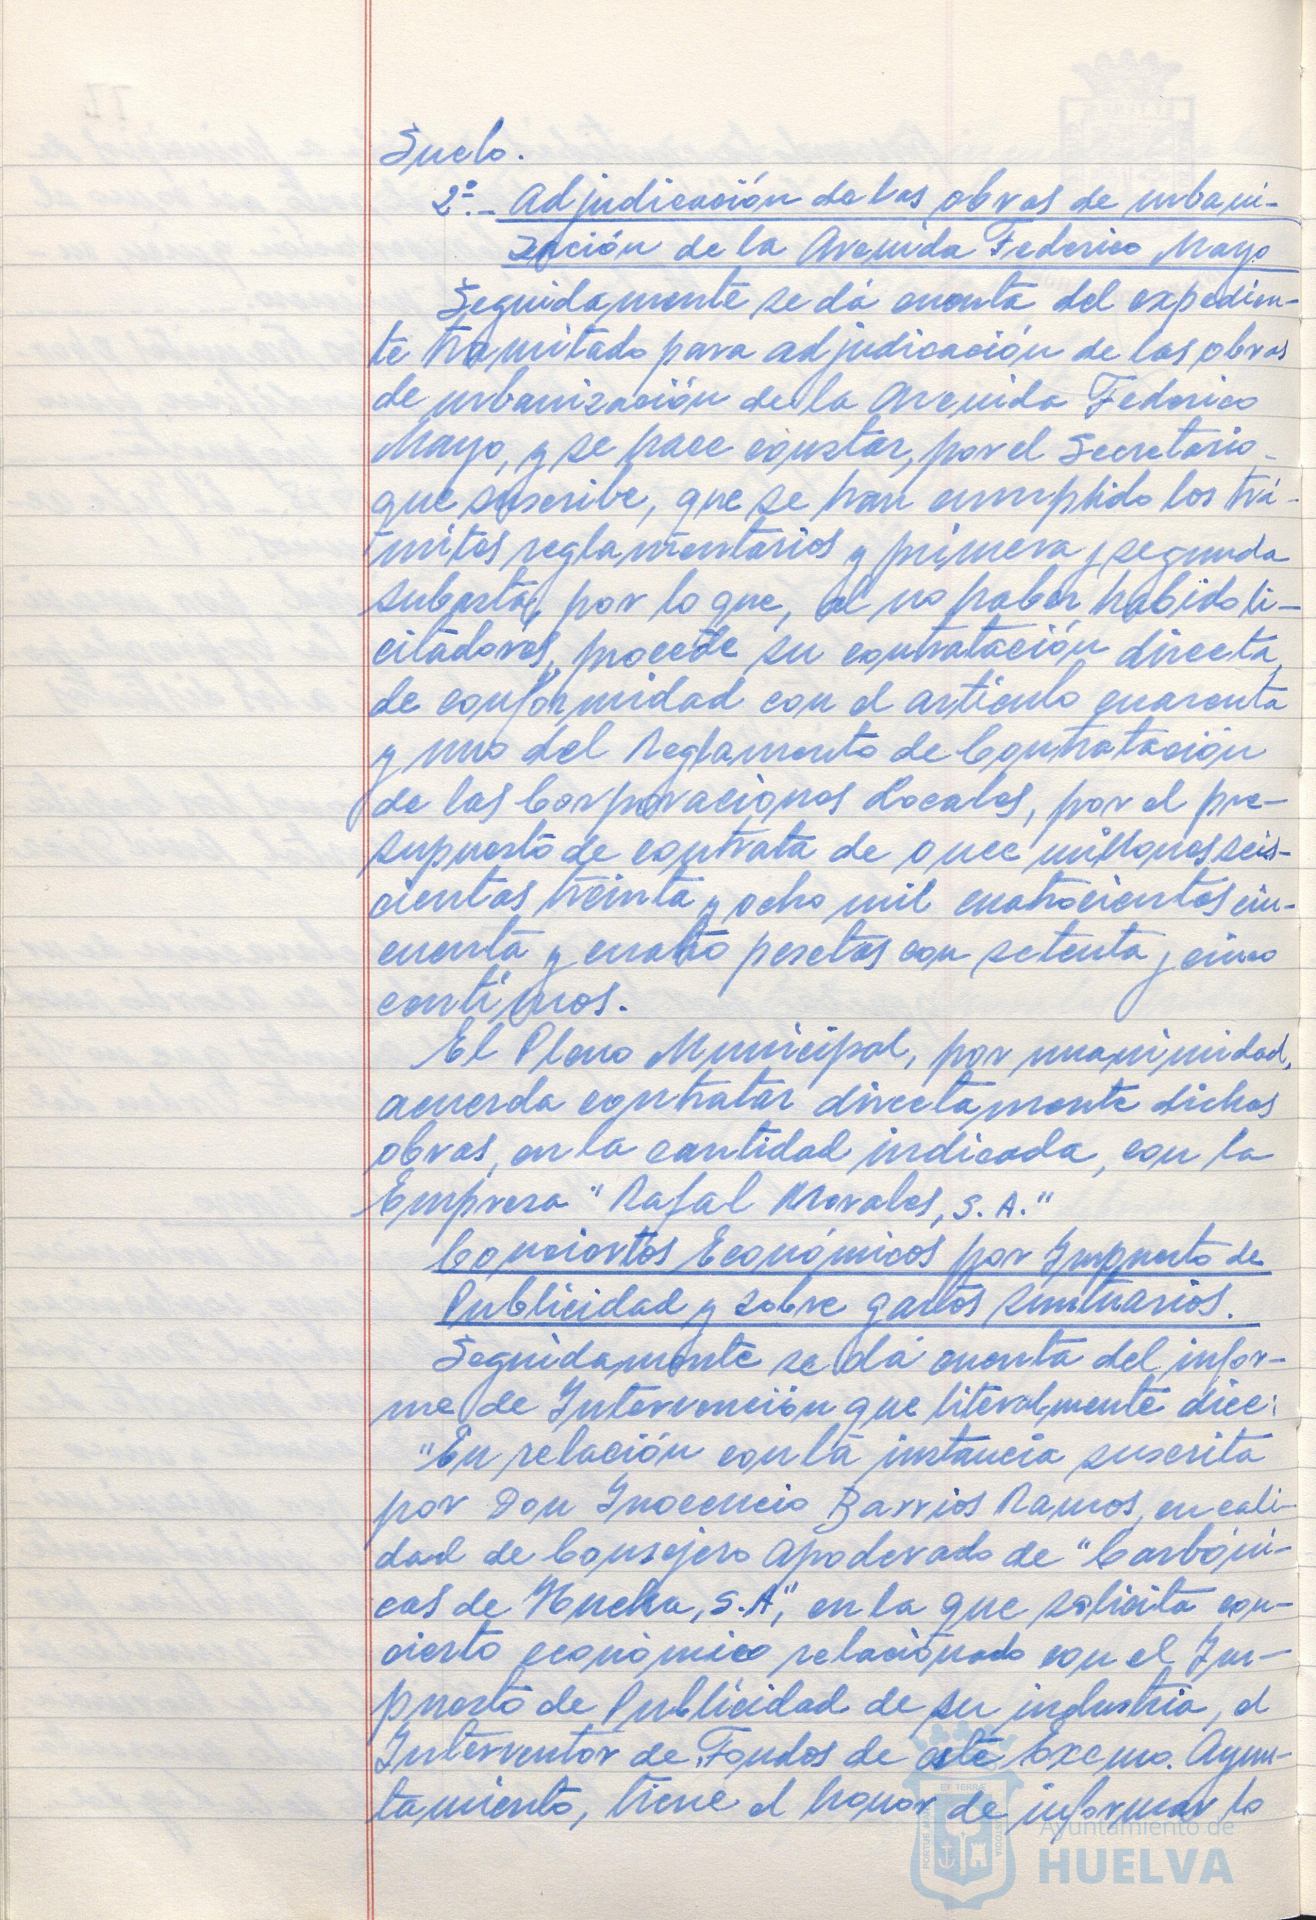 Suelo.
2º.- Adjudicación de las obras de urbani-
zación de la Avenida Federico Mayo
Seguidamente se dá cuenta del expedien-
te tramitado para adjudicación de las obras
de urbanización de la Avenida Federico
Mayo, y se hace constar, por el Secretario
que suscribe, que se han cumplido los trá-
mites reglamentarios y primera y segunda
subasta, por lo que, al no haber habido li-
citadores, procede su contratación directa,
de conformidad con el artículo cuarenta
y uno del Reglamento de Contratación
de las Corporaciones Locales, por el pre-
supuesto de contrata de once millones seis-
cientas treinta y ocho mil cuatrocientos cin-
cuenta y cuatro pesetas con setenta y cinco
centimos.
El Pleno Municipal, por unanimidad,
acuerda contratar directamente dichas
obras, en la cantidad indicada, con la
Empresa "Rafael Morales, S.A."
Conciertos Económicos por Impuesto de
Publicidad y sobre gastos suntuarios.
Seguidamente se dá cuenta del infor-
me de Intervención que literalmente dice:
"En relación con la instancia suscrita
por Don Inocencio Barrios Ramos, en cali-
dad de Consejero Apoderado de "Carbóni-
cas de Huelva, S.A", en la que solicita con-
cierto económico relacionado con el Im-
puesto de Publicidad de su industria, el
Interventor de Fondos de este Excmo. Ayun-
tamiento, tiene el honor de informar lo
Ayuntamiento de
HUELVA